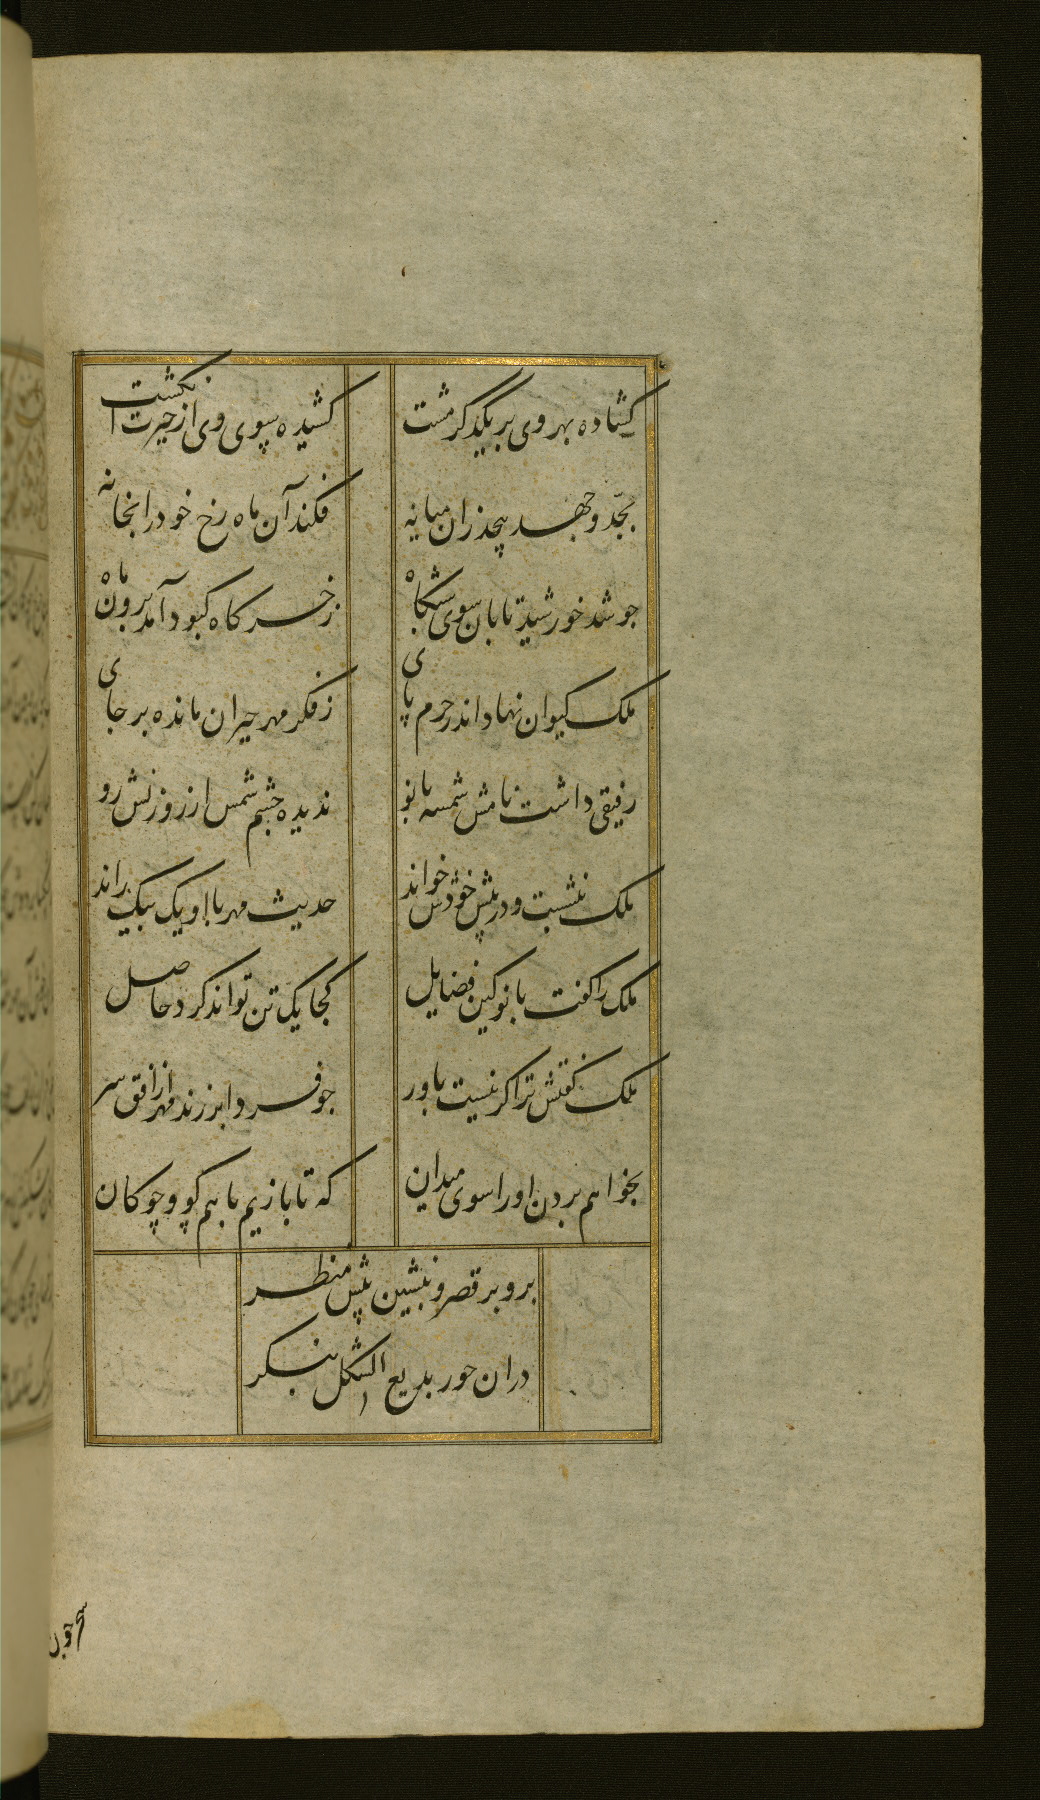 گشاده بهر وی بر یکدگر مشت
کشیده سوی وی از حیرت انگشت
بجد و جهد چند زان میانه
فکند آن ماه رخ خود را بخانه
چو شد خورشید تابان سوی بنگاه
ز خرگاه کبود آمد برون ماه
ملک کیوان نهاد اندر حرم پای
ز فکر مهر حیران مانده بر جای
رفیقی داشت نامش شمسه بانو
ندیده چشم شمس از روزنش رو
ملک بنشست و در پیش خودش خواند
حدیث مهر با او یک بیک راند
ملک را گفت بانو کین فضایل
کجا یک تن تواند کرد حاصل
ملک گفتش ترا گر نیست باور
چو فردا بر زند مهر از افق سر
بخواهم بردن او را سوی میدان
که تا بازیم با هم گوی و چوکان
برو بر قصر و بنشین پیش منظر
در ان حور بدیع الشکل بنگر